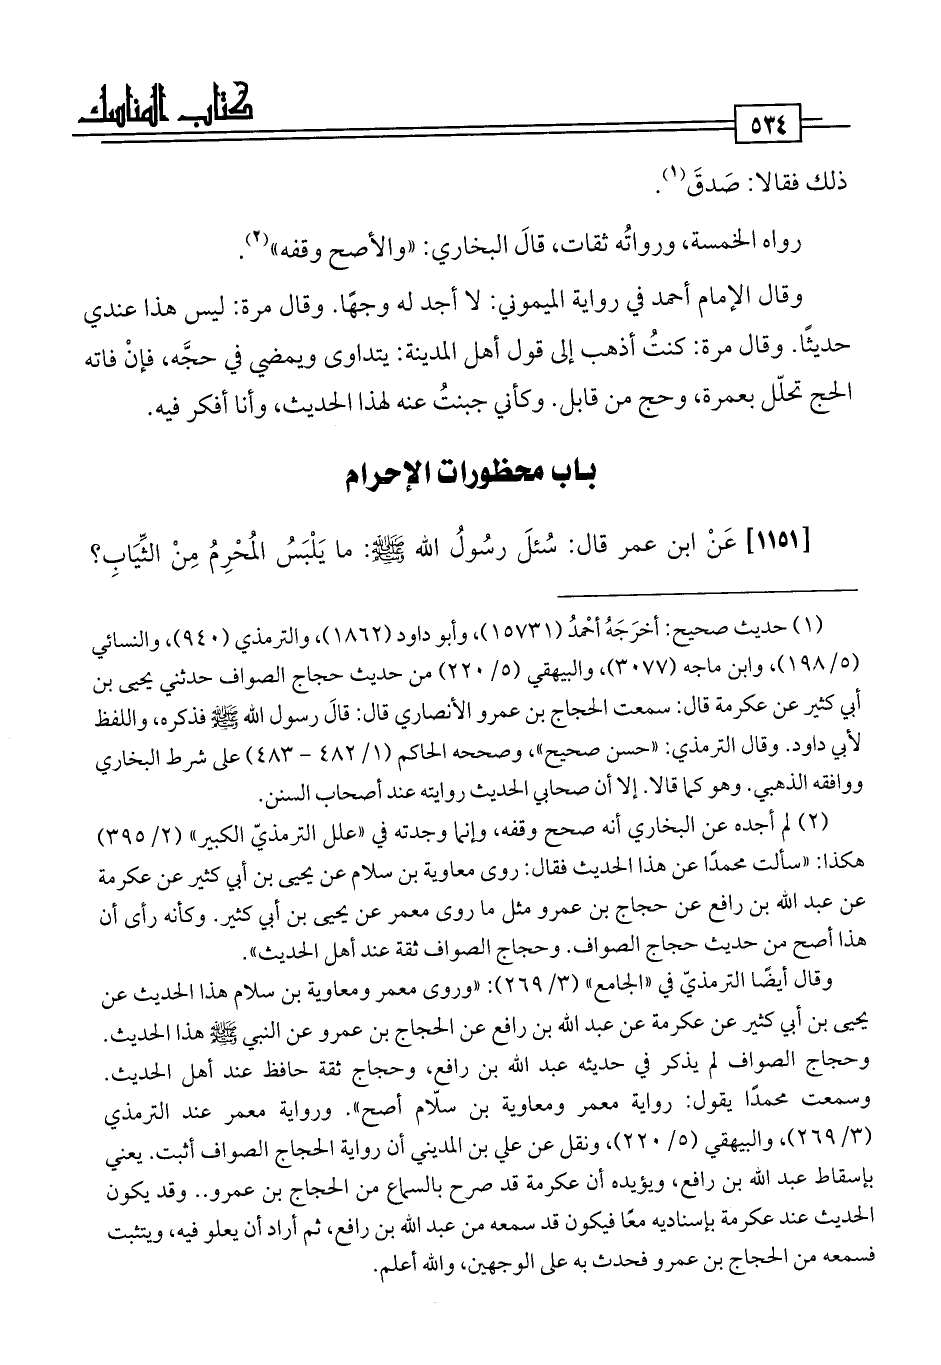 كتاب المناسك
٥٣٤
ذلك فقالا: صَدقَ(١).
رواه الخمسة، ورواتُه ثقات، قالَ البخاري: «والأصح وقفه»(٢).
وقال الإمام أحمد في رواية الميموني: لا أجد له وجهًا. وقال مرة: ليس هذا عندي
حديثًا. وقال مرة: كنتُ أذهب إلى قول أهل المدينة: يتداوى ويمضي في حجَّه، فإنْ فاته
الحج تحلّل بعمرة، وحج من قابل. وكأني جبنتُ عنه لهذا الحديث، وأنا أفكر فيه.
باب محظورات الإحرام
[١١٥١] عَنْ ابن عمر قال: سُئلَ رسُولُ الله ﷺ: ما يَلْبَسُ المُحْرِمُ مِنْ الثِّيَابِ؟
(١) حديث صحيح: أخرَجَهُ أحْمدُ (١٥٧٣١)، وأبو داود (١٨٦٢)، والترمذي (٩٤٠)، والنسائي
(٥/ ١٩٨)، وابن ماجه (٣٠٧٧)، والبيهقي (٥/ ٢٢٠) من حديث حجاج الصواف حدثني يحيى بن
أبي كثير عن عكرمة قال: سمعت الحجاج بن عمرو الأنصاري قال: قالَ رسول الله ﷺ فذكره، واللفظ
لأبي داود. وقال الترمذي: «حسن صحيح»، وصححه الحاكم (١/ ٤٨٢ - ٤٨٣) على شرط البخاري
ووافقه الذهبي. وهو كما قالا. إلا أن صحابي الحديث روايته عند أصحاب السنن.
(٢) لم أجده عن البخاري أنه صحح وقفه، وإنما وجدته في «علل الترمذيّ الكبير» (٢/ ٣٩٥)
هكذا: «سألت محمدًا عن هذا الحديث فقال: روى معاوية بن سلام عن يحيى بن أبي كثير عن عكرمة
عن عبد الله بن رافع عن حجاج بن عمرو مثل ما روى معمر عن يحيى بن أبي كثير. وكأنه رأى أن
هذا أصح من حديث حجاج الصواف. وحجاج الصواف ثقة عند أهل الحديث».
وقال أيضًا الترمذيّ في «الجامع» (٣/ ٢٦٩): «وروى معمر ومعاوية بن سلام هذا الحديث عن
يحيى بن أبي كثير عن عكرمة عن عبد الله بن رافع عن الحجاج بن عمرو عن النبي ﷺ هذا الحديث.
وحجاج الصواف لم يذكر في حديثه عبد الله بن رافع، وحجاج ثقة حافظ عند أهل الحديث.
وسمعت محمدًا يقول: رواية معمر ومعاوية بن سلّام أصح». ورواية معمر عند الترمذي
(٣/ ٢٦٩)، والبيهقي (٥/ ٢٢٠)، ونقل عن علي بن المديني أن رواية الحجاج الصواف أثبت. يعني
بإسقاط عبد الله بن رافع، ويؤيده أن عكرمة قد صرح بالسماع من الحجاج بن عمرو.. وقد يكون
الحديث عند عكرمة بإسناديه معًا فيكون قد سمعه من عبد الله بن رافع، ثم أراد أن يعلو فيه، ويتثبت
فسمعه من الحجاج بن عمرو فحدث به على الوجهين، والله أعلم.